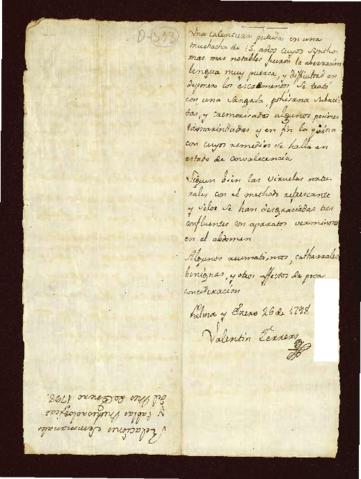 D-113
Una calentura putrida en una
muchacha de 15 años cuyos syntho-
mas mas notables fueron la aberracion
lengua muy puerca, y dificultad en
deponer los escrementos. Se trató
con una Sangria,
das, y algunos
tamarindadas y en fin la quina
con cuyos remedios se halla en
estado de convalecencia
Siguen bien las viruelas natu-
rales con el methodo refrescante
y solo se han desgraciadas tres
confluentes con aparatos verminosos
en el abdomen
Algunos reumatismos, catharrales
benignas, y otros affectos de poca
concideración
Palma y Enero 26 de 1798
Valentin Terrers
Relaciones Semanales
y tablas Nosologicas
del Mes de Enero 1798.